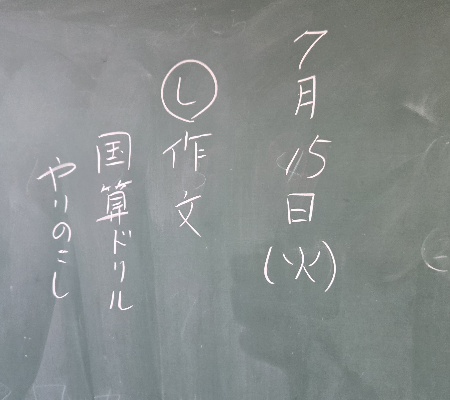 7月15日(火)
Ⓛ作文
国算ドリル
やりのこし